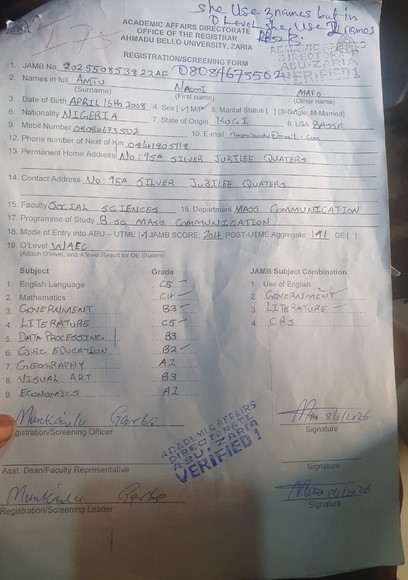 she Use 3names but in
O Level she Use 2 names
ACADEMIC AFFAIRS DIRECTORATE
OFFICE OF THE REGISTRAR
AHMADU BELLO UNIVERSITY, ZARIA
REGISTRATION/SCREENING FORM
ACADEMIC AFFAIRS
DIRECTORATE
A.B.U. ZARIA
VERIFIED 1
1. JAMB No: 202550853822AF 08084675562
2. Names in full Amtu Naomi Mayo
(Surname) (First name) (Other name)
3. Date of Birth APRIL 16th 2008 4. Sex [ ] M/F 5. Marital Status [ ] (S-Single, M-Married)
6. Nationality NIGERIA 7. State of Origin KOGI 8. LGA BASSA
9. Mobil Number 10. E-mail
12. Phone number of Next of Kin
13. Permanent Home Address No: 95A SILVER JUBILEE QUATERS
14. Contact Address No: 95A SILVER JUBILEE QUATERS
15. Faculty SOCIAL SCIENCES 16. Department MASS COMMUNICATION
17. Programme of Study B.sc MASS COMMUNICATION
18. Mode of Entry into ABU – UTME [✓] JAMB SCORE: 204 POST-UTME Aggregate: 191 DE [ ]
19. O'Level WAEC
(Attach O'level, and A'level Result for DE Student)
Subject Grade JAMB Subject Combination
1. English Language C5 1. Use of English
2. Mathematics C4 2. GOVERNMENT
3. GOVERNMENT B3 3. LITERATURE
4. LITERATURE C5 4. CRS
5. DATA PROCESSING B3
6. CIVIC EDUCATION B2
7. GEOGRAPHY A1
8. VISUAL ART B3
9. ECONOMICS A1
8/1/2026
gistration/Screening Officer Signature
ACADEMIC AFFAIRS
DIRECTORATE
A.B.U. ZARIA
VERIFIED 1
Asst. Dean/Faculty Representative Signature
8/1/2026
Registration/Screening Leader Signature